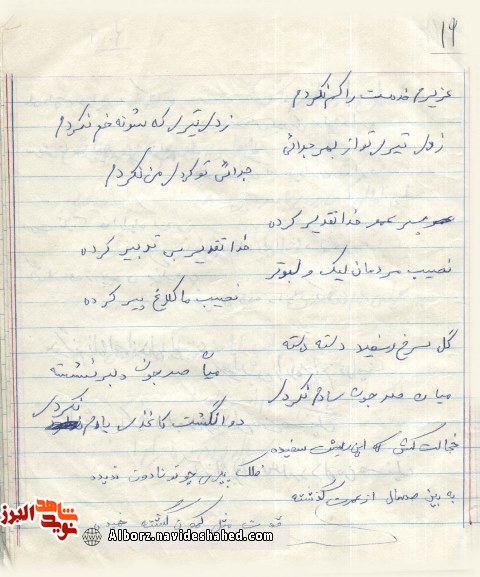 ۱۹
عزیزم خدمت را کم نکردم
زدی تیری که شونه خم نکردم
زدی تیری تو از بهر جدائی
جدائی تو کردی من نکردم
خدا تقدیر کرده
خدا تقدیر بی تدبیر کرده
نصیب مردمان لیک و کبوتر
نصیب ما کلاغ پیر کرده
گل سرخ و سفید دسته دسته
میان صد جون دلبر نشسته
میان صد جون سادم نکردی
دو انگشت کاغذی یادم نکردی
خجالت کش که این ریشت سفیده
فلک پیری چو تو نادون ندیده
به پنج صد سال از عمرت گذشته
شاهد
نوید
البرز
Alborz.navideshahed.com